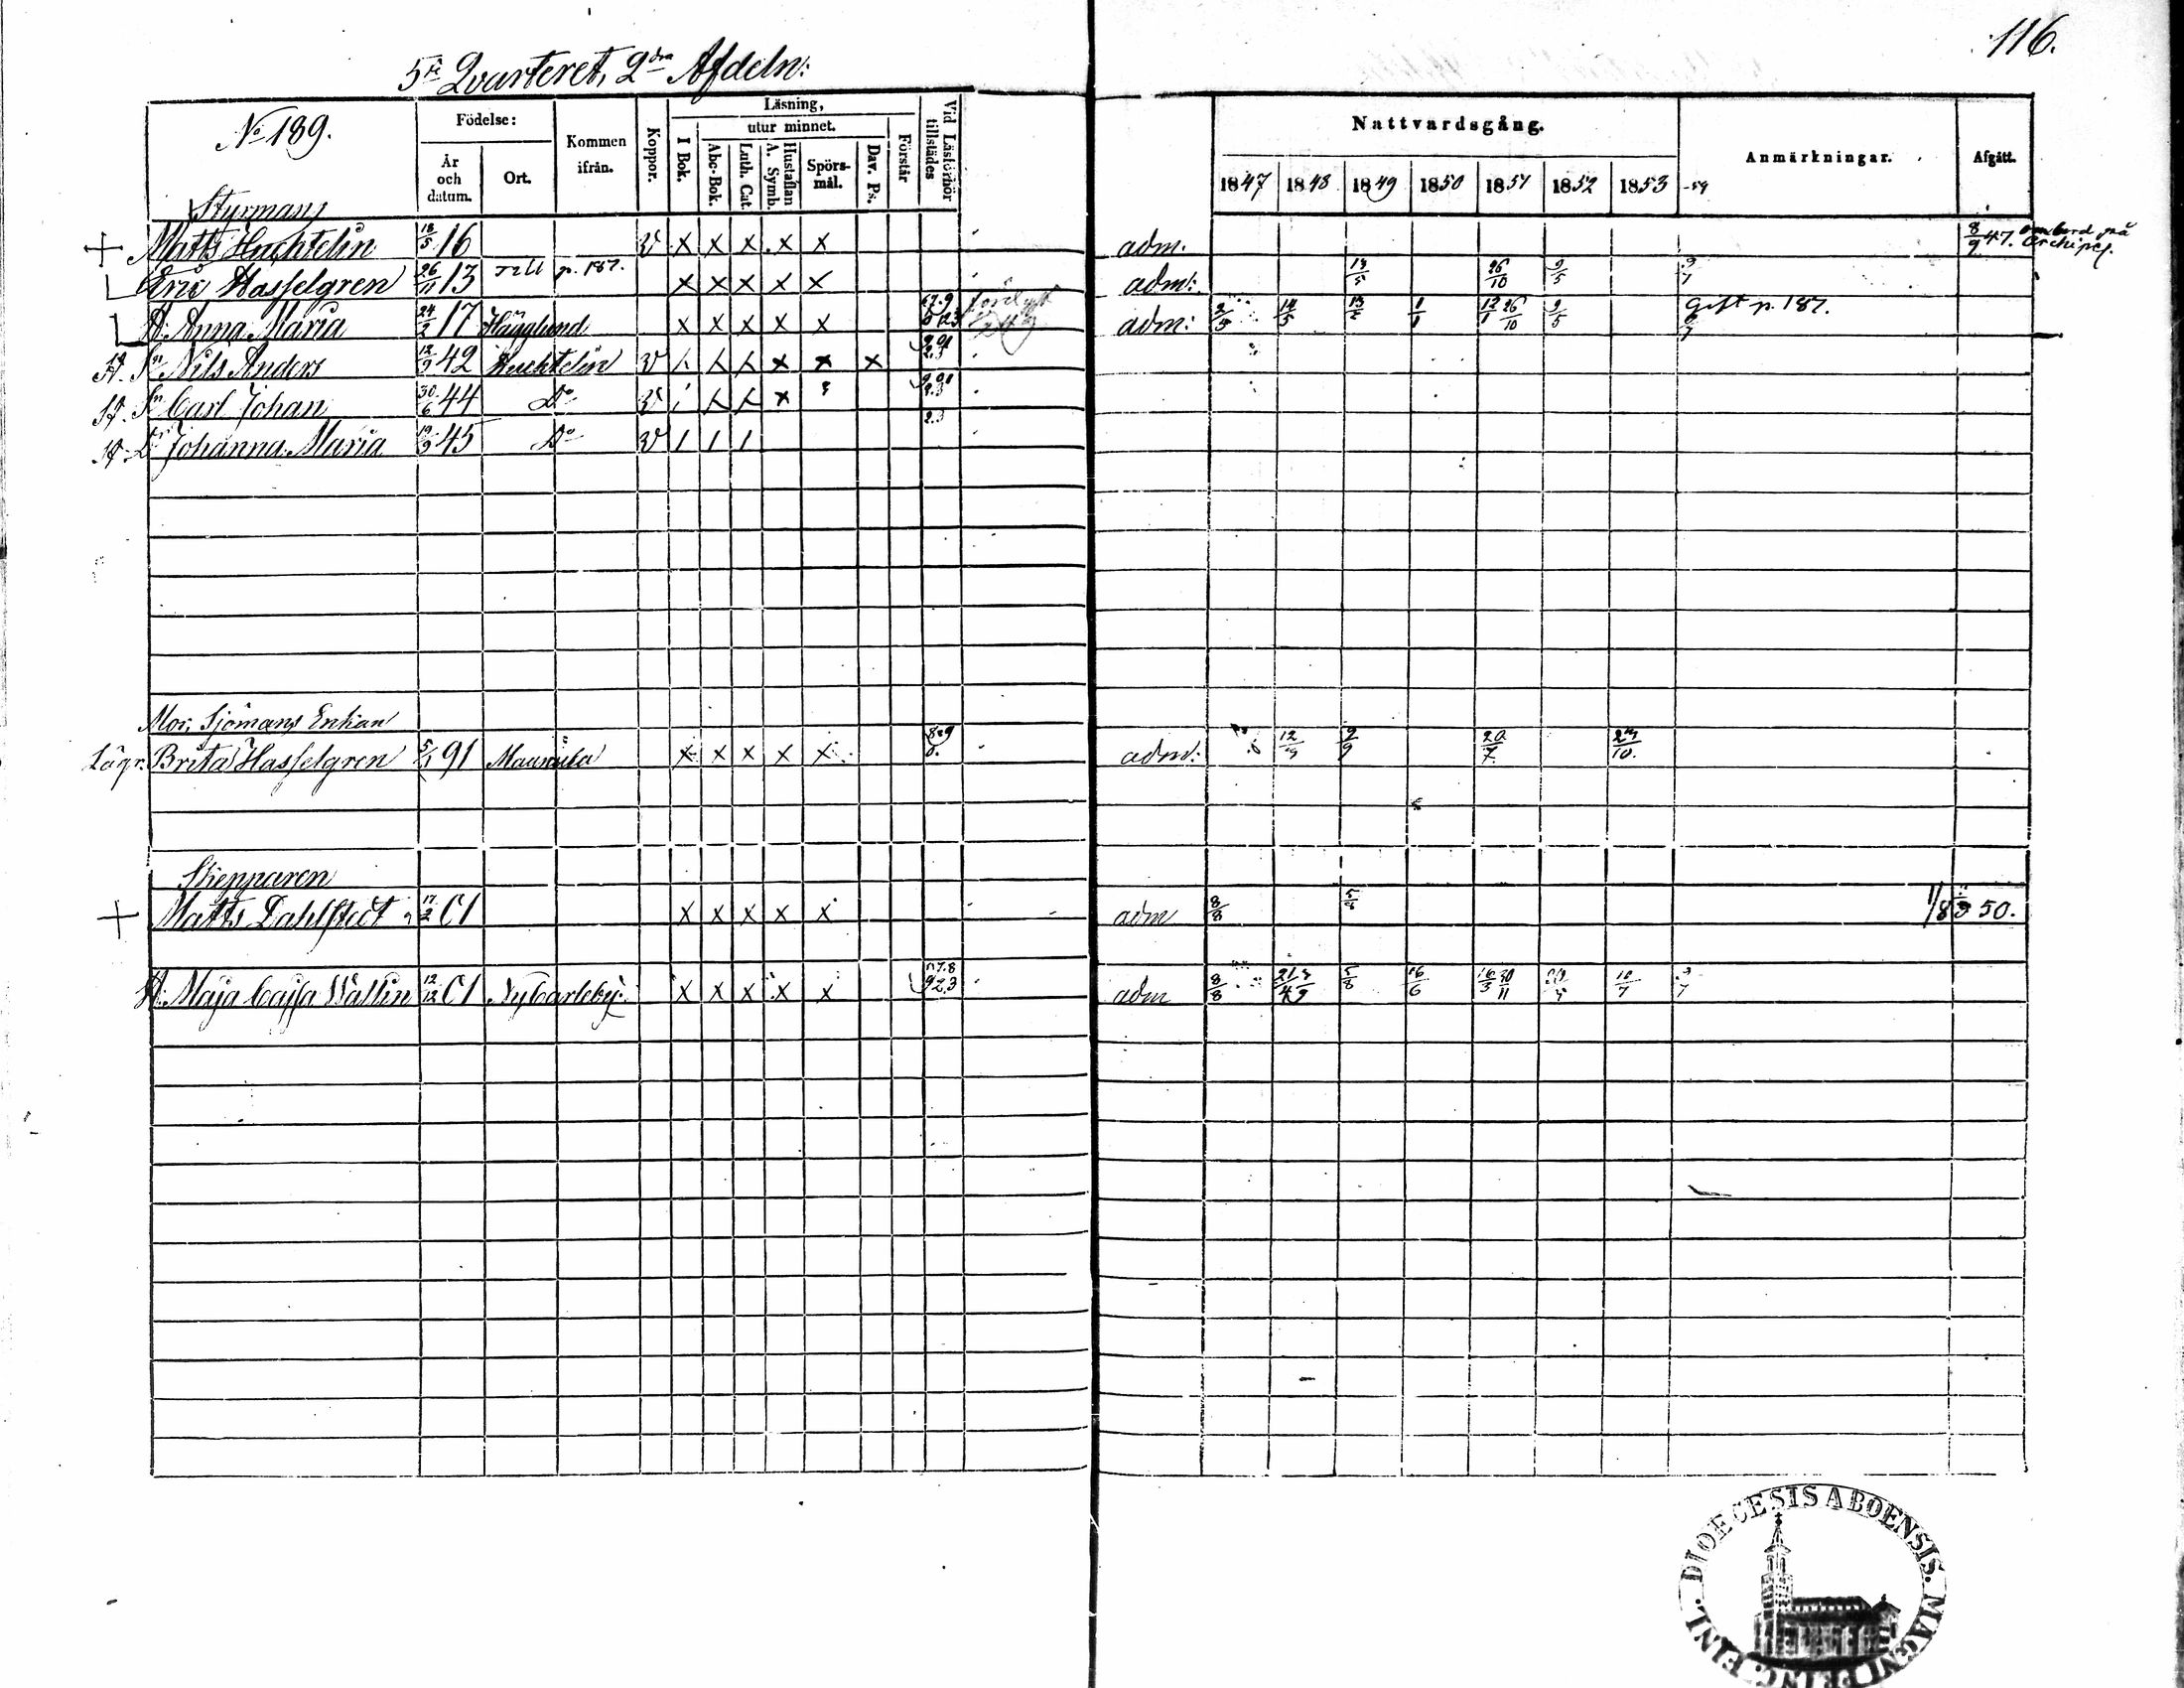 116.
5te Qvarteret, 2dra Afdeln:
No 189.
Födelse:
År och datum.
Ort.
Kommen ifrån.
Koppor.
Läsning,
utur minnet.
I Bok.
Abc-Bok.
Luth. Cat.
A. Symb. Hustaflan
Spörs-mål.
Dav. Ps.
Förstår
Vid Läsförhör tillstädes
Nattvardsgång.
1847 1848 1849 1850 1851 1852 1853 -54
Anmärkningar.
Afgått.
Styrmans
+ Matts Huchtelin 18/5 16 v x x x x x adm. 8/9 47. ombord på Archipel.
Eric Hasselgren 26/11 13 Till p. 187. x x x x x adm: 13/5 26/10 9/5 9/7
H. Anna Maria 24/2 17 Hägglund x x x x x adm: 2/5 14/5 1/1 12/1 26/10 9/5 9/7 Gift p. 187.
H. Sn Nils Anders 12/9 42 Huchtelin v x x x
H. Sn Carl Johan 30/6 44 Do v x
H. Dr Johanna Maria 19/9 45 Do v
Mor, Sjömans Enkan
Lägr. Brita Hasselgren 5/1 91 Maunula x x x x x adm: 12/9 9/9 20/7 24/10.
Skepparen
+ Matts Dahlstedt 17/2 01 x x x x x adm 8/8 5/8 1/8 50.
H. Maja Cajsa Wallin 12/12 01 NyCarleby. x x x x x adm 8/8 5/8 16/6 30/11 10/7 3/7
DIOECESIS ABOENSIS. MAGNI PRINC. FINL.